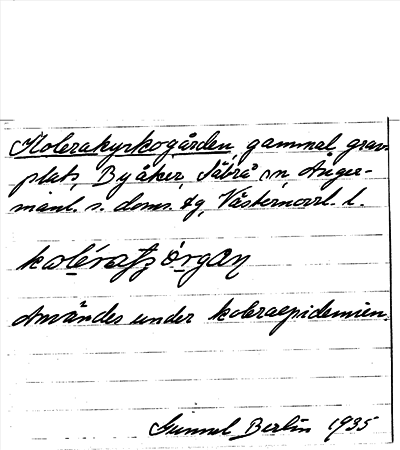 Kolerakyrkogården, gammal grav-
plats, Byåker, Säbrå sn Ånger-
manl. s. doms. tg, Västernorrl. l.
Användes under koleraepidemien.
Gunnel Berlin 1935